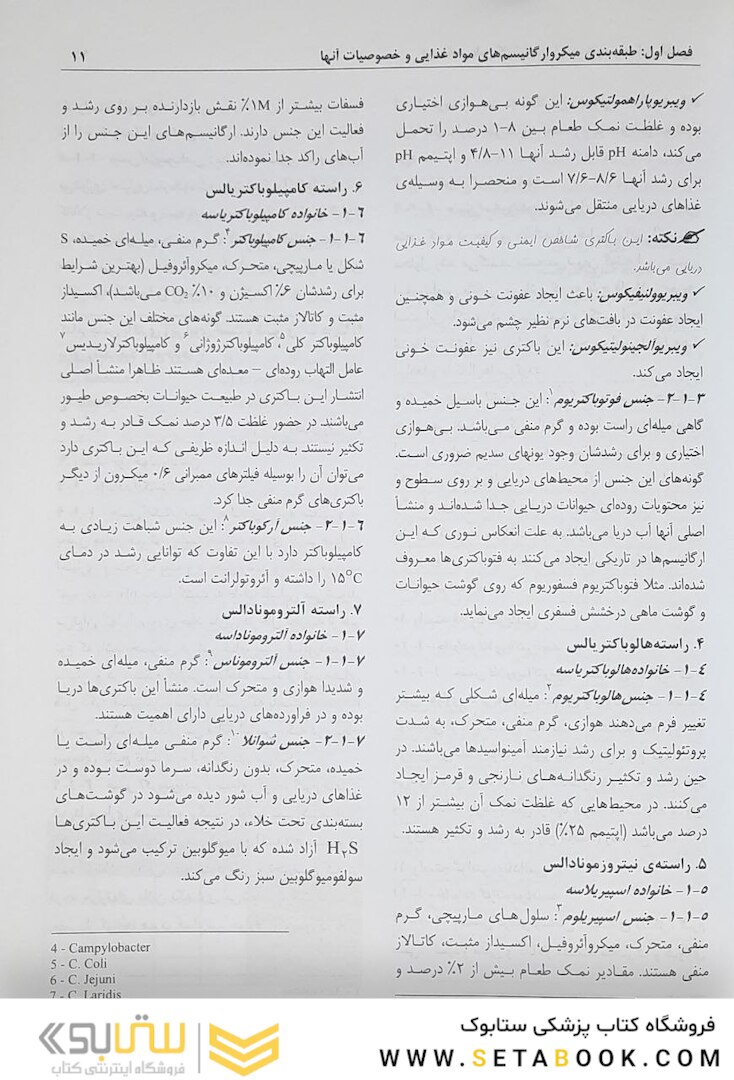 فصل اول: طبقه‌بندی میکروارگانیسم‌های مواد غذایی و خصوصیات آنها ۱۱
✓ ویبریوپاراهمولتیکوس: این گونه بی‌هوازی اختیاری
بوده و غلظت نمک طعام بین ۸-۱ درصد را تحمل
می‌کند، دامنه pH قابل رشد آنها ۱۱-۴/۸ و اپتیمم pH
برای رشد آنها ۸/۶-۷/۶ است و منحصرا به وسیله‌ی
غذاهای دریایی منتقل می‌شوند.
نکته: این باکتری شاخص ایمنی و کیفیت مواد غذایی
دریایی می‌باشد.
✓ ویبریوولنیفیکوس: باعث ایجاد عفونت خونی و همچنین
ایجاد عفونت در بافت‌های نرم نظیر چشم می‌شود.
✓ ویبریوآلجینولیتیکوس: این باکتری نیز عفونت خونی
ایجاد می‌کند.
۳-۱-۲- جنس فوتوباکتریوم۱: این جنس باسیل خمیده و
گاهی میله‌ای راست بوده و گرم منفی می‌باشد. بی‌هوازی
اختیاری و برای رشدشان وجود یونهای سدیم ضروری است.
گونه‌های این جنس از محیط‌های دریایی و بر روی سطوح و
نیز محتویات روده‌ای حیوانات دریایی جدا شده‌اند و منشأ
اصلی آنها آب دریا می‌باشد. به علت انعکاس نوری که این
ارگانیسم‌ها در تاریکی ایجاد می‌کنند به فتوباکتری‌ها معروف
شده‌اند. مثلا فتوباکتریوم فسفوریوم که روی گوشت حیوانات
و گوشت ماهی درخشش فسفری ایجاد می‌نماید.
۴. راسته‌هالوباکتریالس
۴-۱- خانواده‌هالوباکتریاسه
۴-۱-۱- جنس‌هالوباکتریوم۲: میله‌ای شکلی که بیشتر
تغییر فرم می‌دهند هوازی، گرم منفی، متحرک، به شدت
پروتئولیتیک و برای رشد نیازمند آمینواسیدها می‌باشند. در
حین رشد و تکثیر رنگدانه‌های نارنجی و قرمز ایجاد
می‌کنند. در محیط‌هایی که غلظت نمک آن بیشتر از ۱۲
درصد می‌باشد (اپتیمم ۲۵٪) قادر به رشد و تکثیر هستند.
۵. راسته‌ی نیتروزمونادالس
۵-۱- خانواده اسپیریلاسه
۵-۱-۱- جنس اسپیریلوم۳: سلول‌های مارپیچی، گرم
منفی، متحرک، میکروآئروفیل، اکسیداز مثبت، کاتالاز
منفی هستند. مقادیر نمک طعام بیش از ۲٪ درصد و
فسفات بیشتر از ۱M٪ نقش بازدارنده بر روی رشد و
فعالیت این جنس دارند. ارگانیسم‌های این جنس را از
آب‌های راکد جدا نموده‌اند.
۶. راسته کامپیلوباکتریالس
۶-۱- خانواده کامپیلوباکتریاسه
۶-۱-۱- جنس کامپیلوباکتر۴: گرم منفی، میله‌ای خمیده، S
شکل یا مارپیچی، متحرک، میکروآئروفیل (بهترین شرایط
برای رشدشان ۶٪ اکسیژن و ۱۰٪ CO₂ می‌باشد)، اکسیداز
مثبت و کاتالاز مثبت هستند. گونه‌های مختلف این جنس مانند
کامپیلوباکتر کلی۵، کامپیلوباکترژوژانی۶ و کامپیلوباکترلاریدیس۷
عامل التهاب روده‌ای – معده‌ای هستند. ظاهرا منشأ اصلی
انتشار این باکتری در طبیعت حیوانات بخصوص طیور
می‌باشند. در حضور غلظت ۳/۵ درصد نمک قادر به رشد و
تکثیر نیستند. به دلیل اندازه ظریفی که این باکتری دارد
می‌توان آن را بوسیله فیلترهای ممبرانی ۰/۶ میکرون از دیگر
باکتری‌های گرم منفی جدا کرد.
۶-۱-۲- جنس آرکوباکتر۸: این جنس شباهت زیادی به
کامپیلوباکتر دارد با این تفاوت که توانایی رشد در دمای
۱۵°C را داشته و آئروتولرانت است.
۷. راسته آلترومونادالس
۷-۱- خانواده آلتروموناداسه
۷-۱-۱- جنس آلتروموناس۹: گرم منفی، میله‌ای خمیده
و شدیدا هوازی و متحرک است. منشأ این باکتری‌ها دریا
بوده و در فراورده‌های دریایی دارای اهمیت هستند.
۷-۱-۲- جنس شوانلا۱۰: گرم منفی میله‌ای راست یا
خمیده، متحرک، بدون رنگدانه، سرما دوست بوده و در
غذاهای دریایی و آب شور دیده می‌شود در گوشت‌های
بسته‌بندی تحت خلاء، در نتیجه فعالیت این باکتری‌ها
H₂S آزاد شده که با میوگلوبین ترکیب می‌شود و ایجاد
سولفومیوگلوبین سبز رنگ می‌کند.
4 - Campylobacter
5 - C. Coli
6 - C. Jejuni
7 - C. Laridis
فروشگاه کتاب پزشکی ستابوک
WWW.SETABOOK.COM
ستابوک
فروشگاه اینترنتی کتاب